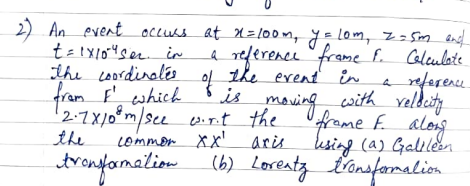 2) An event occurs at x=100m, y=10m, z=5m and
t=1x10⁻⁴ sec. in a reference frame F. Calculate
the coordinates of the event in a reference
fram F' which is moving with velocity
2.7x10⁸m/sec w.r.t the frame F. along
the common xx' axis using (a) Galilean
transformation (b) Lorentz transformation